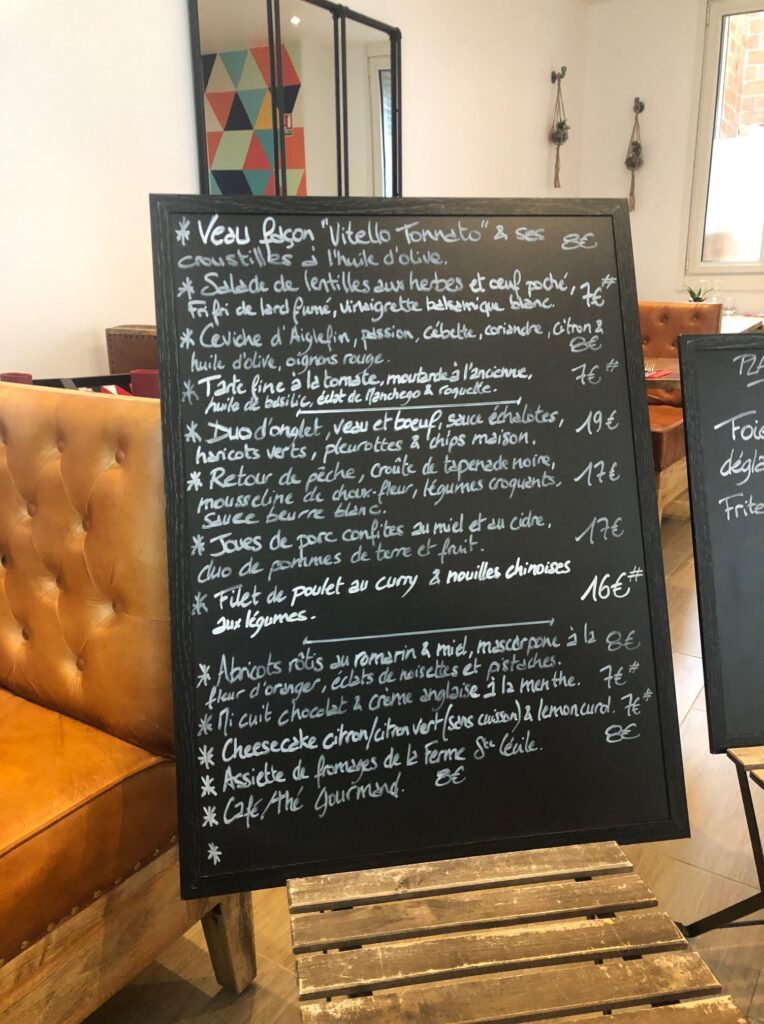 * Veau façon "Vitello Tonnato" & ses 8€
croustilles à l'huile d'olive.
* Salade de lentilles aux herbes et œuf poché, 7€#
Fri fri de lard fumé, vinaigrette balsamique blanc.
* Ceviche d'Aiglefin, passion, cébette, coriandre, citron &
huile d'olive, oignons rouge. 8€
* Tarte fine à la tomate, moutarde à l'ancienne, 7€#
huile de basilic, éclat de Manchego & roquette.
* Duo d'onglet, veau et boeuf, sauce échalotes, 19€
haricots verts, pleurottes & chips maison.
* Retour de pêche, croûte de tapenade noire, 17€
mousseline de choux-fleur, légumes croquants,
sauce beurre blanc.
* Joues de porc confites au miel et au cidre, 17€
duo de pommes de terre et fruit.
* Filet de poulet au curry & nouilles chinoises 16€#
aux légumes.
* Abricots rôtis au romarin & miel, mascarpone à la 8€
fleur d'oranger, éclats de noisettes et pistaches.
* Mi cuit chocolat & crème anglaise à la menthe. 7€#
* Cheesecake citron/citron vert (sans cuisson) & lemoncurd. 7€#
* Assiette de fromages de la Ferme Ste Cécile. 8€
* Café/thé Gourmand. 8€
*
PLA
Fois
dégla
Frite